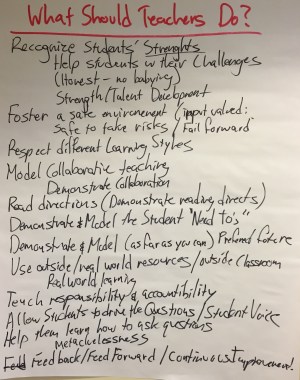 What Should Teachers Do?
Recognize Students' Strenghts
Help students w their Challenges
(Honest - no babying)
Strength/Talent Development
Foster a safe environement (input valued:
Safe to take risks / fail forward
Respect different Learning Styles
Model Collaborative teaching
Demonstrate Collaboration
Read directions (Demonstrate reading directs)
Demonstrate & Model the Student "Need to's"
Demonstrate & Model (as far as you can) Preferred future
Use outside/real world resources/outside Classroom
Real world learning
Teach responsibility & accountibility
Allow Students to drive the Questions/Student Voice
Help them learn how to ask questions
Metacluelessness
Feedback/Feed Forward/Continuous Improvement!